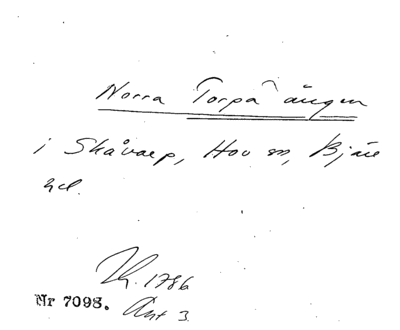 Norra Torpa ängen
i Skåvarp, Hov sn, Bjäre
hd.
Lk. 1786
Nr 7098. Akt 3